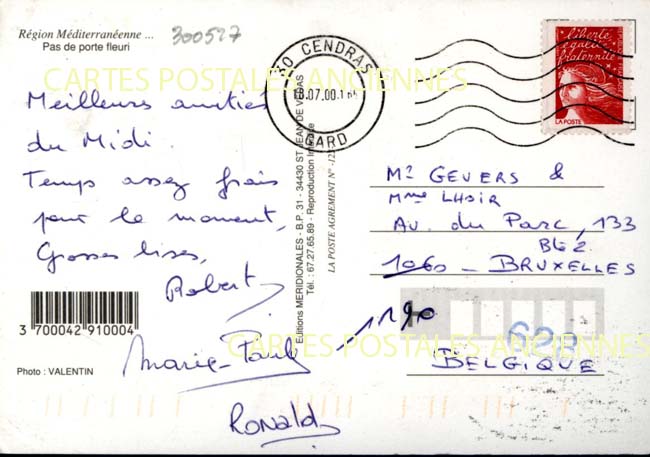 Région Méditerranéenne ...
Pas de porte fleuri
300527
CARTES POSTALES ANCIENNES
Meilleures amitiés
du Midi.
Temps assez frais
pour le moment,
Grosses bises,
Robert
Marie-Paule
Ronald
3 700042 910004
Photo : VALENTIN
Editions MERIDIONALES - B.P. 31 - 34430 ST JEAN DE VEDAS
Tél. : 67.27.65.89 - Reproduction Interdite
LA POSTE AGREMENT N°
30 CENDRAS
18.07.00
GARD
Liberté
égalité
fraternité
LA POSTE
Mr GEVERS &
Mme LHOIR
Av. du Parc, 133
Bte 2
1060 - BRUXELLES
1190
BELGIQUE
CARTES POSTALES ANCIENNES